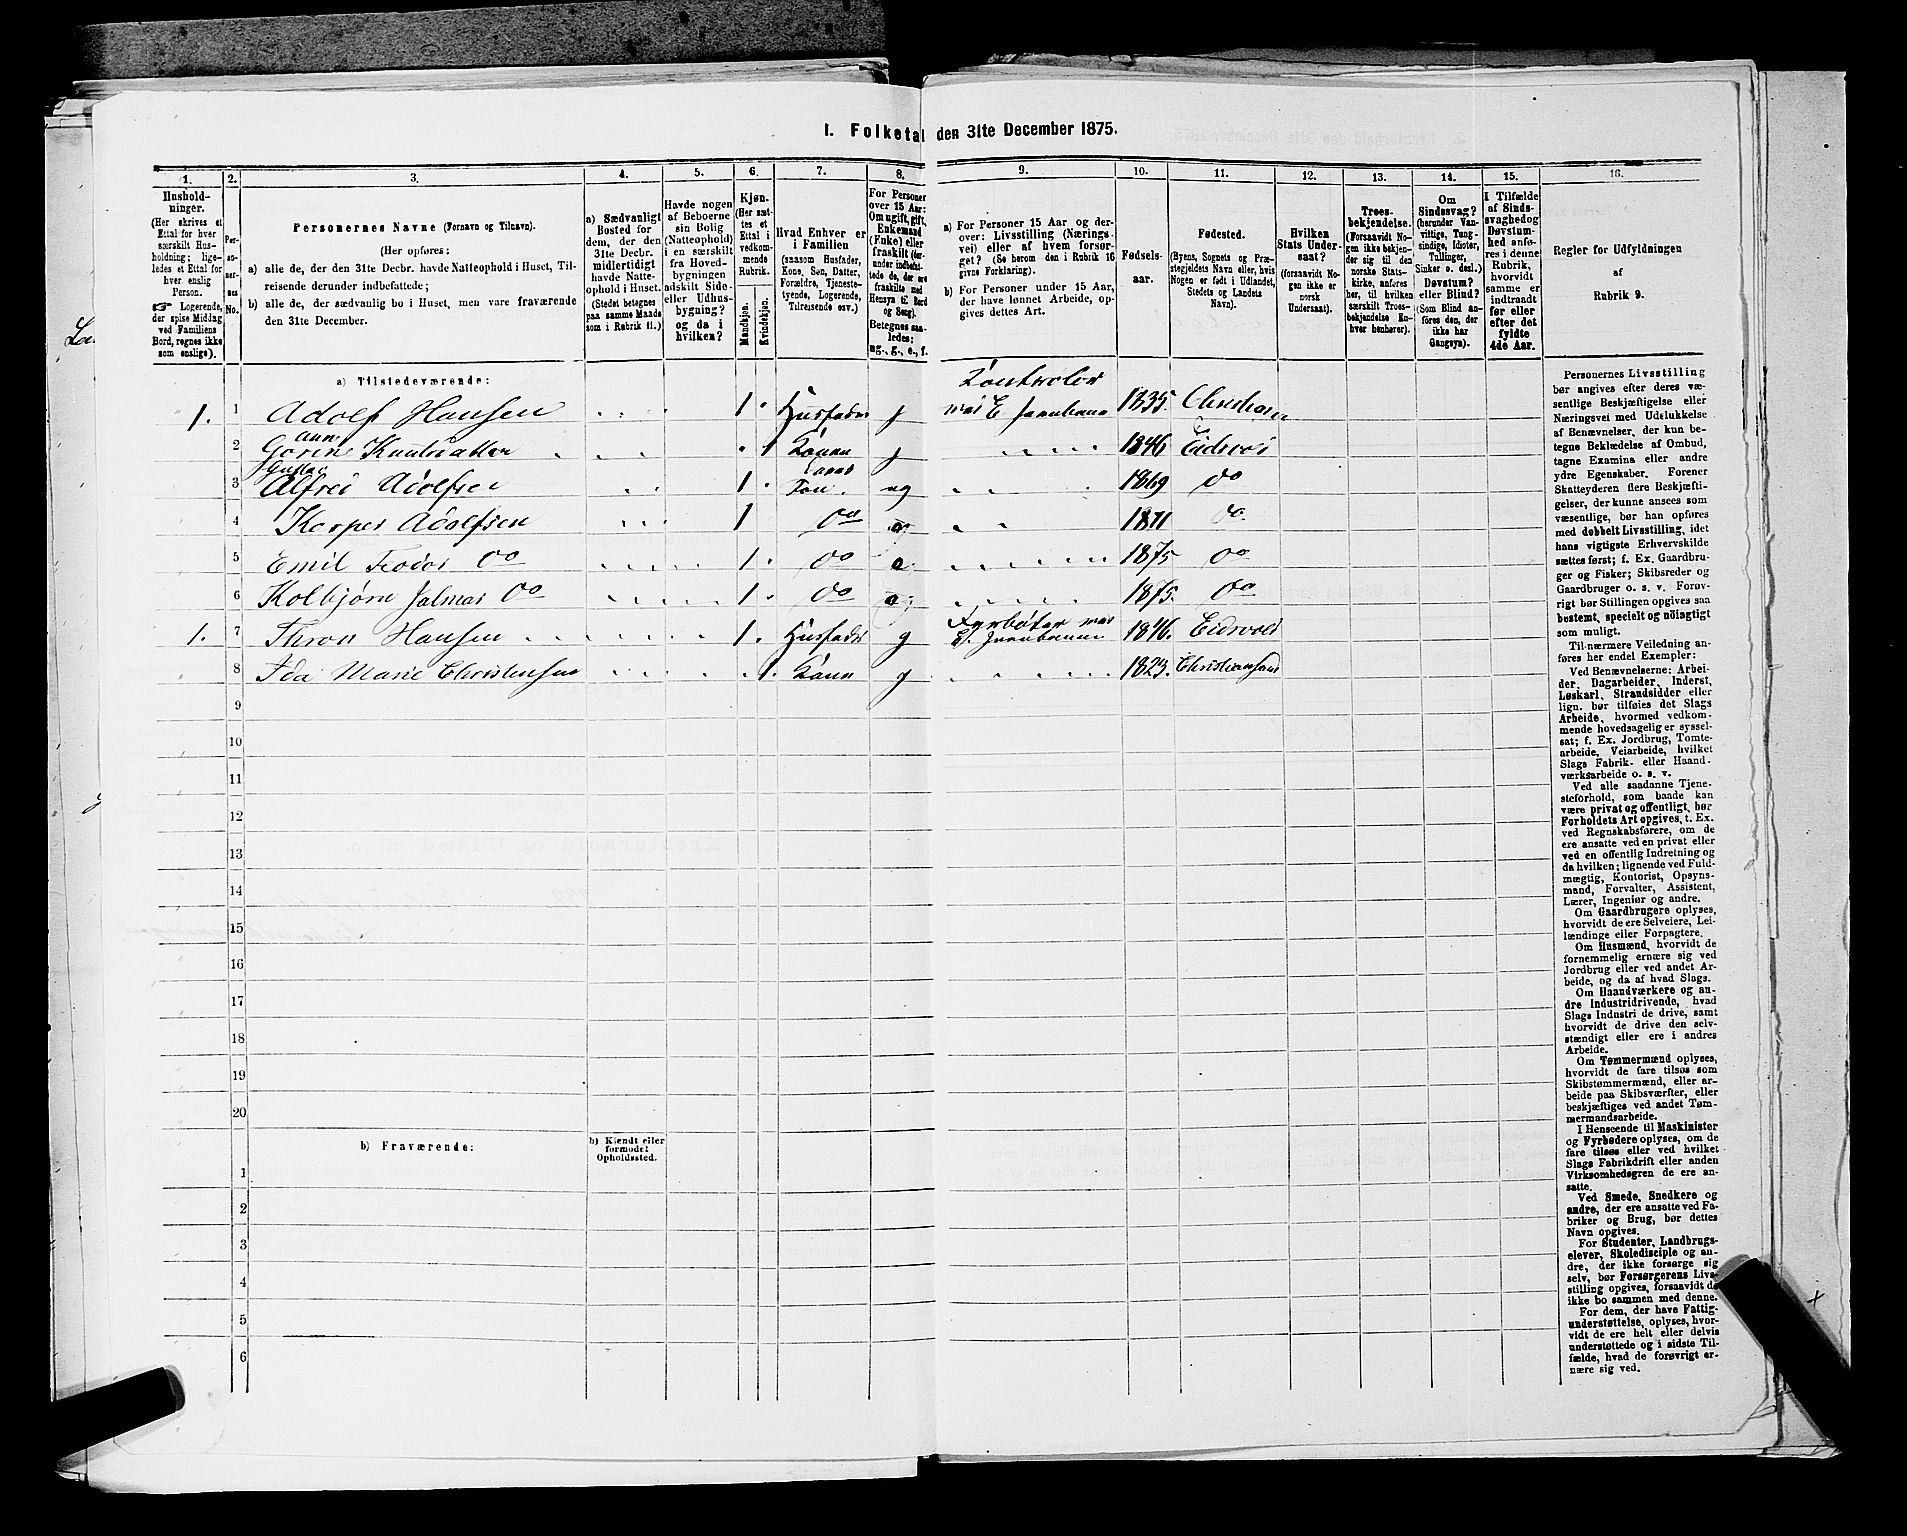 I. Folketal den 31te December 1875.
1.
Hushold-
ninger.
(Her skrives et
Ettal for hver
særskilt Hus-
holdning; lige-
ledes et Ettal for
hver enslig
Person.
☞ Logerende,
der spise Middag
ved Familiens
Bord, regnes ikke
som enslige).
2.
Per-
so-
ner-
nes
No.
3.
Personernes Navne (Fornavn og Tilnavn).
(Her opføres:
a) alle de, der den 31te Decbr. havde Natteophold i Huset, Til-
reisende derunder indbefattede;
b) alle de, der sædvanlig bo i Huset, men vare fraværende
den 31te December.
4.
a) Sædvanligt
Bosted for
dem, der den
31te Decbr.
midlertidigt
havde Natte-
ophold i Huset.
(Stedet betegnes
paa samme Maade
som i Rubrik 11.)
5.
Havde nogen
af Beboerne
sin Bolig
(Natteophold)
i en særskilt
fra Hoved-
bygningen
adskilt Side-
eller Udhus-
bygning?
og da i
hvilken?
6.
Kjøn.
(Her sæt-
tes et
Ettal i
vedkom-
mende
Rubrik.
Mandkjøn.
Kvindekjøn.
7.
Hvad Enhver er
i Familien
(saasom Husfader,
Kone, Søn, Datter,
Forældre, Tjeneste-
tyende, Logerende,
Tilreisende osv.)
8.
For Personer
over 15 Aar:
Om ugift, gift,
Enkemand
(Enke) eller
fraskilt (her-
under indbefat-
tede de, der ere
fraskilte med
Hensyn til Bord
og Seng).
Betegnes saa-
ledes:
ug., g., e., f.
9.
a) For Personer 15 Aar og der-
over: Livsstilling (Nærings-
vei) eller af hvem forsør-
get? (Se herom den i Rubrik 16
givne Forklaring).
b) For Personer under 15 Aar,
der have lønnet Arbeide, op-
gives dettes Art.
10.
Fødsels-
aar.
11.
Fødested.
(Byens, Sognets og Præ-
stegjeldets Navn eller, hvis
Nogen er født i Udlandet,
Stedets og Landets
Navn).
12.
Hvilken
Stats Under-
saat?
(forsaavidt No-
gen ikke er
norsk
Undersaat).
13.
Troes-
bekjendelse.
(Forsaavidt No-
gen ikke bekjen-
der sig til den
norske Stats-
kirke, anføres
her, til hvilken
særskilt Troes-
bekjendelse En-
hver henhører).
14.
Om
Sindssvag?
(herunder Van-
vittige, Tung-
sindige, Idioter,
Tullinger,
Sinker o. desl.)
Døvstum?
eller Blind?
(Som Blind an-
føres den, der
ikke har
Gangsyn).
15.
I Tilfælde
af Sinds-
svaghed og
Døvstum-
hed anfø-
res i denne
Rubrik,
hvorvidt
samme er
indtraadt
før eller
efter det
fyldte
4de Aar.
16.
Regler for Udfyldningen
af
Rubrik 9.
a) Tilstedeværende:
1. 1 Adolf Hansen 1 Husfader g Kontrolør ved E Jernbane 1835. Christiania
2 Gorine Ann Knutsdatter 1 Konen g 1846 Eidsvol
3 Gustav Alfred Adolfsen 1 Søn ug 1869 do
4 Kasper Adolfsen 1 do 1871 do
5 Emil Teodor do 1 do 1875 do
6 Kolbjørn Jalmar do 1 do 1875. do
1. 7 Thron Hansen 1. Husfader g Fyrbøter ved E. Jernbanen 1846. Eidsvold
8 Ida Marie Christensen 1. Konen g 1823. Christiansand
9
10
11
12
13
14
15
16
17
18
19
20
b) Fraværende:
b) Kjendt eller
formodet
Opholdssted.
1
2
3
4
5
6
Personernes Livsstilling
bør angives efter deres væ-
sentlige Beskjæftigelse eller
Næringsvei med Udelukkelse
af Benævnelser, der kun be-
tegne Beklædelse af Ombud,
tagne Examina eller andre
ydre Egenskaber. Forener
Skatteyderen flere Beskjæfti-
gelser, der kunne ansees som
væsentlige, bør han opføres
med dobbelt Livsstilling, idet
hans vigtigste Erhvervskilde
sættes først; f. Ex. Gaardbru-
ger og Fisker; Skibsreder og
Gaardbruger o. s. v. Forøv-
rigt bør Stillingen opgives saa
bestemt, specielt og nøiagtigt
som muligt.
Til nærmere Veiledning an-
føres her endel Exempler:
Ved Benævnelserne: Arbei-
der, Dagarbeider, Inderst,
Løskarl, Strandsidder eller
lign. bør tilføies det Slags
Arbeide, hvormed vedkom-
mende hovedsagelig er syssel-
sat; f. Ex. Jordbrug, Tomte-
arbeide, Veiarbeide, hvilket
Slags Fabrik- eller Haand-
værksarbeide o. s. v.
Ved alle saadanne Tjene-
steforhold, som baade kan
være privat og offentligt, bør
Forholdets Art opgives, t. Ex.
ved Regnskabsførere, om de
ere ansatte ved en privat eller
ved en offentlig Indretning og
da hvilken; lignende ved Fuld-
mægtig, Kontorist, Opsyns-
mand, Forvalter, Assistent,
Lærer, Ingeniør og andre.
Om Gaardbrugere oplyses,
hvorvidt de ere Selveiere, Lei-
lændinge eller Forpagtere.
Om Husmænd, hvorvidt de
fornemmelig ernære sig ved
Jordbrug eller ved andet Ar-
beide, og da af hvad Slags.
Om Haandværkere og an-
dre Industridrivende, hvad
Slags Industri de drive, samt
hvorvidt de drive den selv-
stændigt eller ere i andres
Arbeide.
Om Tømmermænd oplyses,
hvorvidt de fare tilsøs som
Skibstømmermænd, eller ar-
beide paa Skibsværfter, eller
beskjæftiges ved andet Tøm-
mermandsarbeide.
I Henseende til Maskinister
og Fyrbødere oplyses, om de
fare tilsøs eller ved hvilket
Slags Fabrikdrift eller anden
Virksomhedsgren de ere an-
satte.
Ved Smede, Snedkere og
andre, der ere ansatte ved Fa-
briker og Brug, bør dettes
Navn opgives.
For Studenter, Landbrugs-
elever, Skoledisciple og an-
dre, der ikke forsørge sig
selv, bør Forsørgerens Livs-
stilling opgives, forsaavidt de
ikke bo sammen med denne.
For dem, der have Fattig-
understøttelse, oplyses, hvor-
vidt de ere helt eller delvis
understøttede og i sidste Til-
fælde, hvad de forøvrigt er-
nære sig ved.